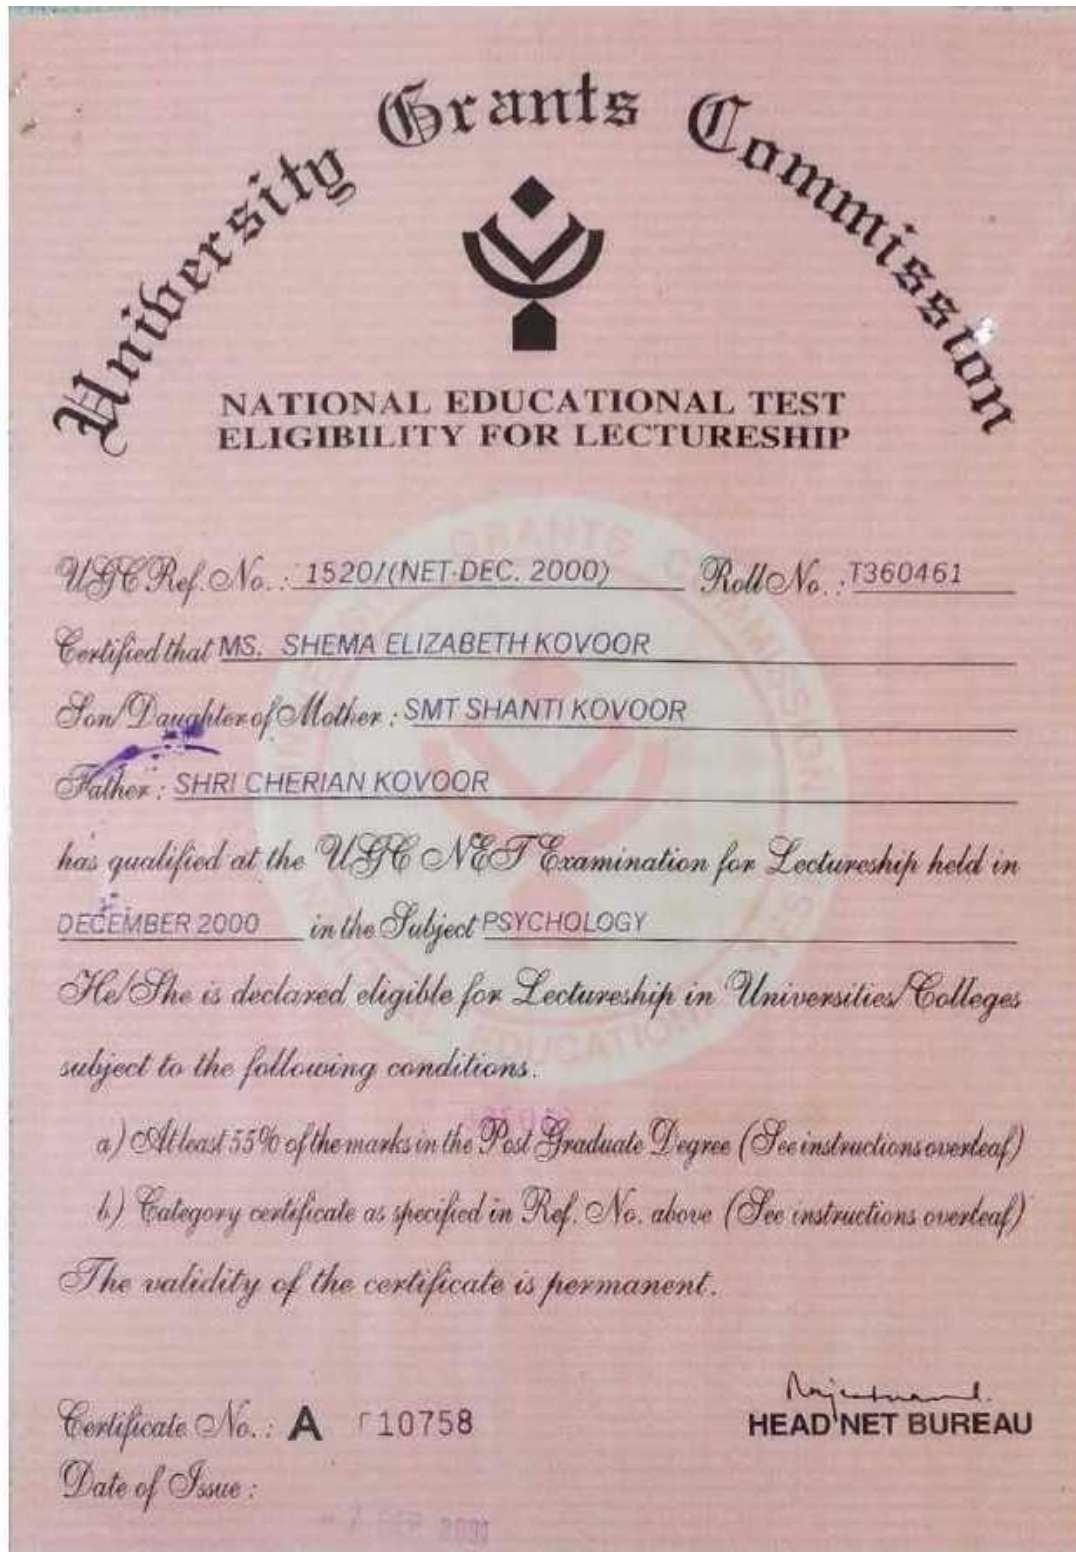 University Grants Commission
NATIONAL EDUCATIONAL TEST
ELIGIBILITY FOR LECTURESHIP
UGC Ref. No. : 1520/(NET-DEC. 2000) Roll No. : T360461
Certified that MS. SHEMA ELIZABETH KOVOOR
Son/Daughter of Mother : SMT SHANTI KOVOOR
Father : SHRI CHERIAN KOVOOR
has qualified at the UGC NET Examination for Lectureship held in
DECEMBER 2000 in the Subject PSYCHOLOGY
He/She is declared eligible for Lectureship in Universities/Colleges
subject to the following conditions.
a) At least 55% of the marks in the Post Graduate Degree (See instructions overleaf)
b) Category certificate as specified in Ref. No. above (See instructions overleaf)
The validity of the certificate is permanent.
HEAD NET BUREAU
Certificate No. : A 10758
Date of Issue :